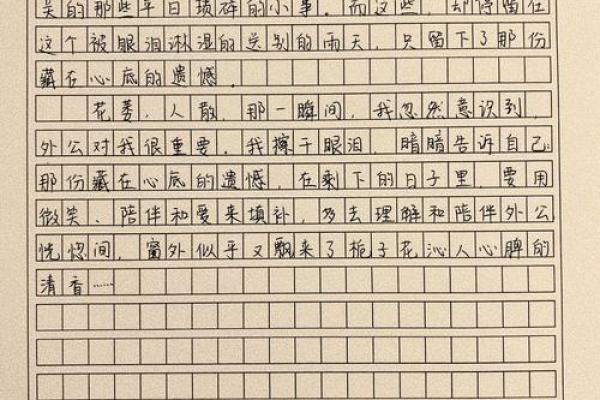 吴的那些平日琐碎的小事。而这些，却停留在
这个被眼泪淋湿的送别的雨天，只留下了那份
藏在心底的遗憾。
花萎，人散，那一瞬间，我忽然意识到，
外公对我很重要。我擦干眼泪，暗暗告诉自己：
那份藏在心底的遗憾，在剩下的日子里，要用
微笑、陪伴和爱来填补，多去理解和陪伴外公
恍惚间，窗外似乎又飘来了栀子花沁人心脾的
清香……